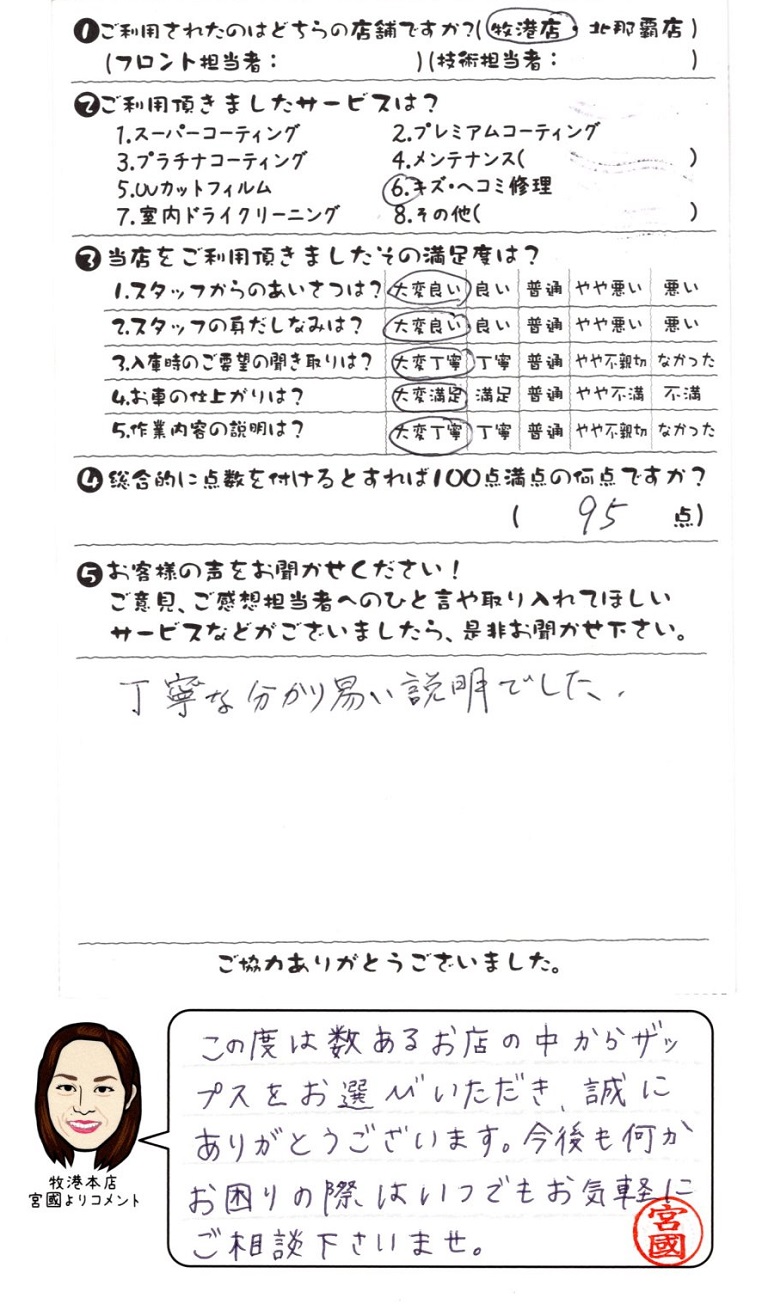 ❶ご利用されたのはどちらの店舗ですか?(牧港店・北那覇店)
(フロント担当者: )(技術担当者: )
❷ご利用頂きましたサービスは?
1.スーパーコーティング 2.プレミアムコーティング
3.プラチナコーティング 4.メンテナンス( )
5.UVカットフィルム 6.キズ・ヘコミ修理
7.室内ドライクリーニング 8.その他( )
❸当店をご利用頂きましたその満足度は?
1.スタッフからのあいさつは? 大変良い 良い 普通 やや悪い 悪い
2.スタッフの身だしなみは? 大変良い 良い 普通 やや悪い 悪い
3.入庫時のご要望の聞き取りは? 大変丁寧 丁寧 普通 やや不親切 なかった
4.お車の仕上がりは? 大変満足 満足 普通 やや不満 不満
5.作業内容の説明は? 大変丁寧 丁寧 普通 やや不親切 なかった
❹総合的に点数を付けるとすれば100点満点の何点ですか?
( 95 点)
❺お客様の声をお聞かせください!
ご意見、ご感想担当者へのひと言や取り入れてほしい
サービスなどがございましたら、是非お聞かせ下さい。
丁寧な分かり易い説明でした、.
ご協力ありがとうございました。
この度は数あるお店の中からザッ
プスをお選びいただき、誠に
ありがとうございます。今後も何か
お困りの際はいつでもお気軽に
ご相談下さいませ。
宮國
牧港本店
宮國よりコメント